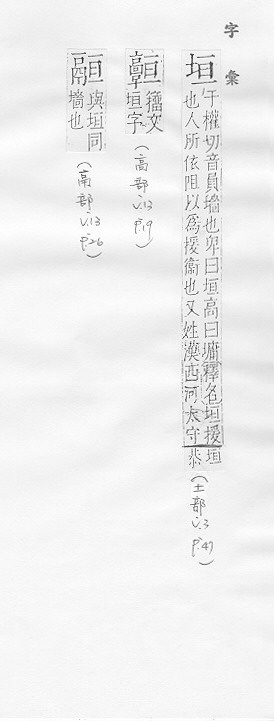 字彙
垣
于權切音員墻也卑曰垣高曰墉釋名垣援
也人所依阻以為援衛也又姓漢西河太守
垣
恭
(土部 v.3 p.47)
籀文
垣字
(高部 v.13 p.19)
與垣同
墻也
(鬲部 v.13 p.26)